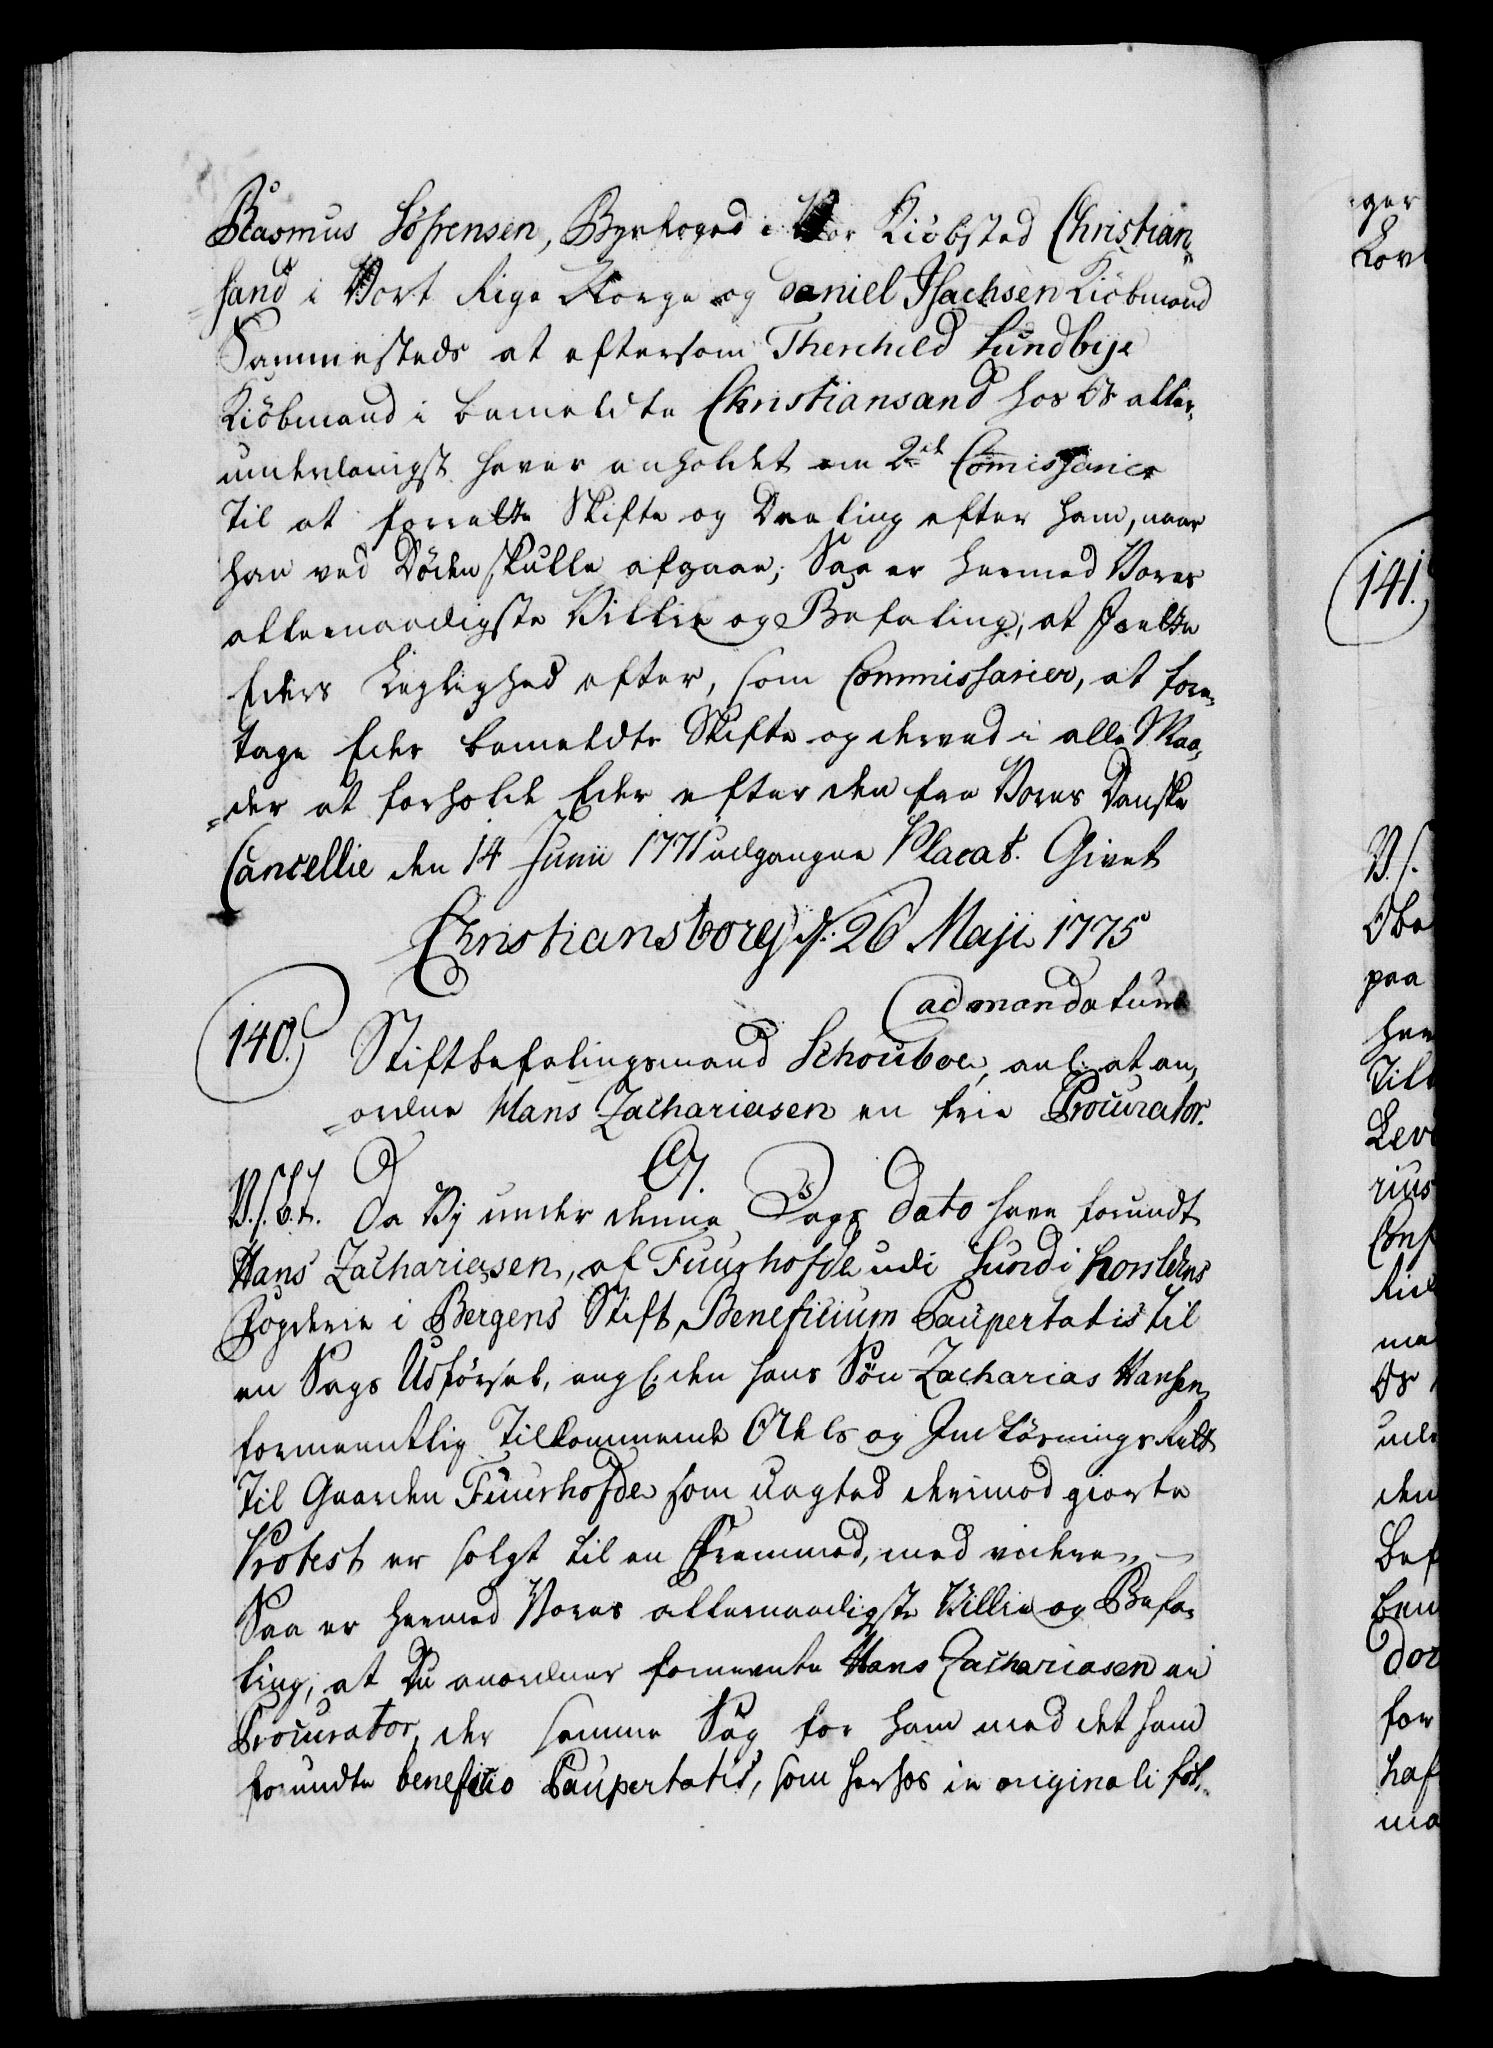 Rasmus Sörensen, Byefoged i Vor Kiöbsted Christian-
sand i Vort Rige Norge og Daniel Isachsen Kiöbmand
Sammesteds at eftersom Therchild Sundbye
Kiöbmand i bemeldte Christiansand hos Os aller-
underdanigst haver anholdet om 2de Commissarier
til at forrette Skifte og Deeling efter ham, naar
han ved Döden skulle afgaae; Saa er hermed Vores
allernaadigste Villie og Befaling, at I rette
Eders Leylighed efter, som Commissarier, at fore-
tage Eder bemeldte Skifte og derved i alle Maa-
der at forholde Eder efter den fra Vores Danske
Cancellie den 14 Junii 1771 udgangne Placat. Givet
Christiansborg d. 26 Maji 1775
ad mandatum
140. Stiftbefalingsmand Schouboe, anl: at an-
ordne Hans Zachariasen en frie Procurator.
C7.
V. S. G. t. Da Vj under denne Dags Dato have forundt
Hans Zachariasen, af Fuurhofde udi Sundi Horslens
Fogderie i Bergens Stift, Beneficium Paupertatis til
en Sags Udförsel, angl: den hans Sön Zacharias Hansen
formeentlig tilkommende Odels og Indlösnings Rett
til Gaarden Fuurhofde som uagted derimod giorte
Protest er solgt til en Fremmed, med videre,
Saa er hermed Vores allernaadigste Villie og Befa-
ling, at Du anordner fornevnte Hans Zachariasen en
Procurator, der samme Sag for ham med det ham
forundte beneficio Paupertatis, som herhos in originali föl-